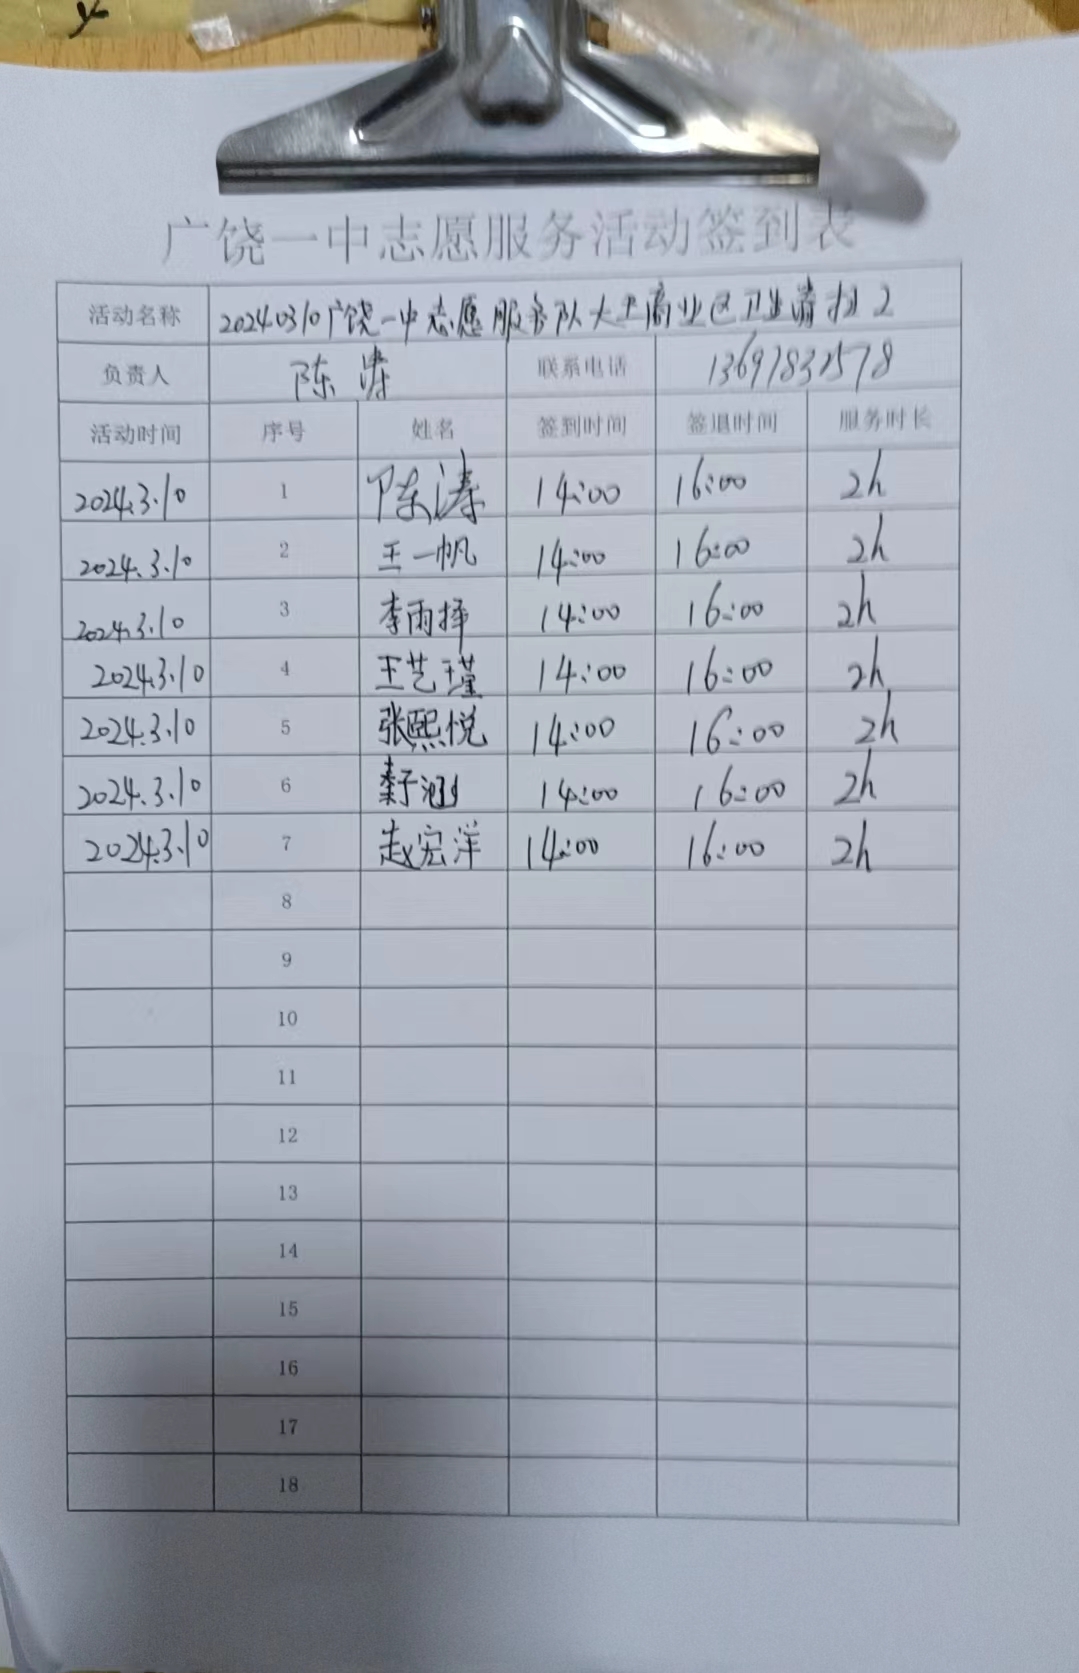 广饶一中志愿服务活动签到表
活动名称 20240310广饶一中志愿服务队大王商业区卫生清扫2
负责人 陈涛 联系电话 13697831578
活动时间 序号 姓名 签到时间 签退时间 服务时长
2024.3.10 1 陈涛 14:00 16:00 2h
2024.3.10 2 王一帆 14:00 16:00 2h
2024.3.10 3 李雨择 14:00 16:00 2h
2024.3.10 4 王艺瑾 14:00 16:00 2h
2024.3.10 5 张熙悦 14:00 16:00 2h
2024.3.10 6 14:00 16:00 2h
2024.3.10 7 赵宏洋 14:00 16:00 2h
8
9
10
11
12
13
14
15
16
17
18